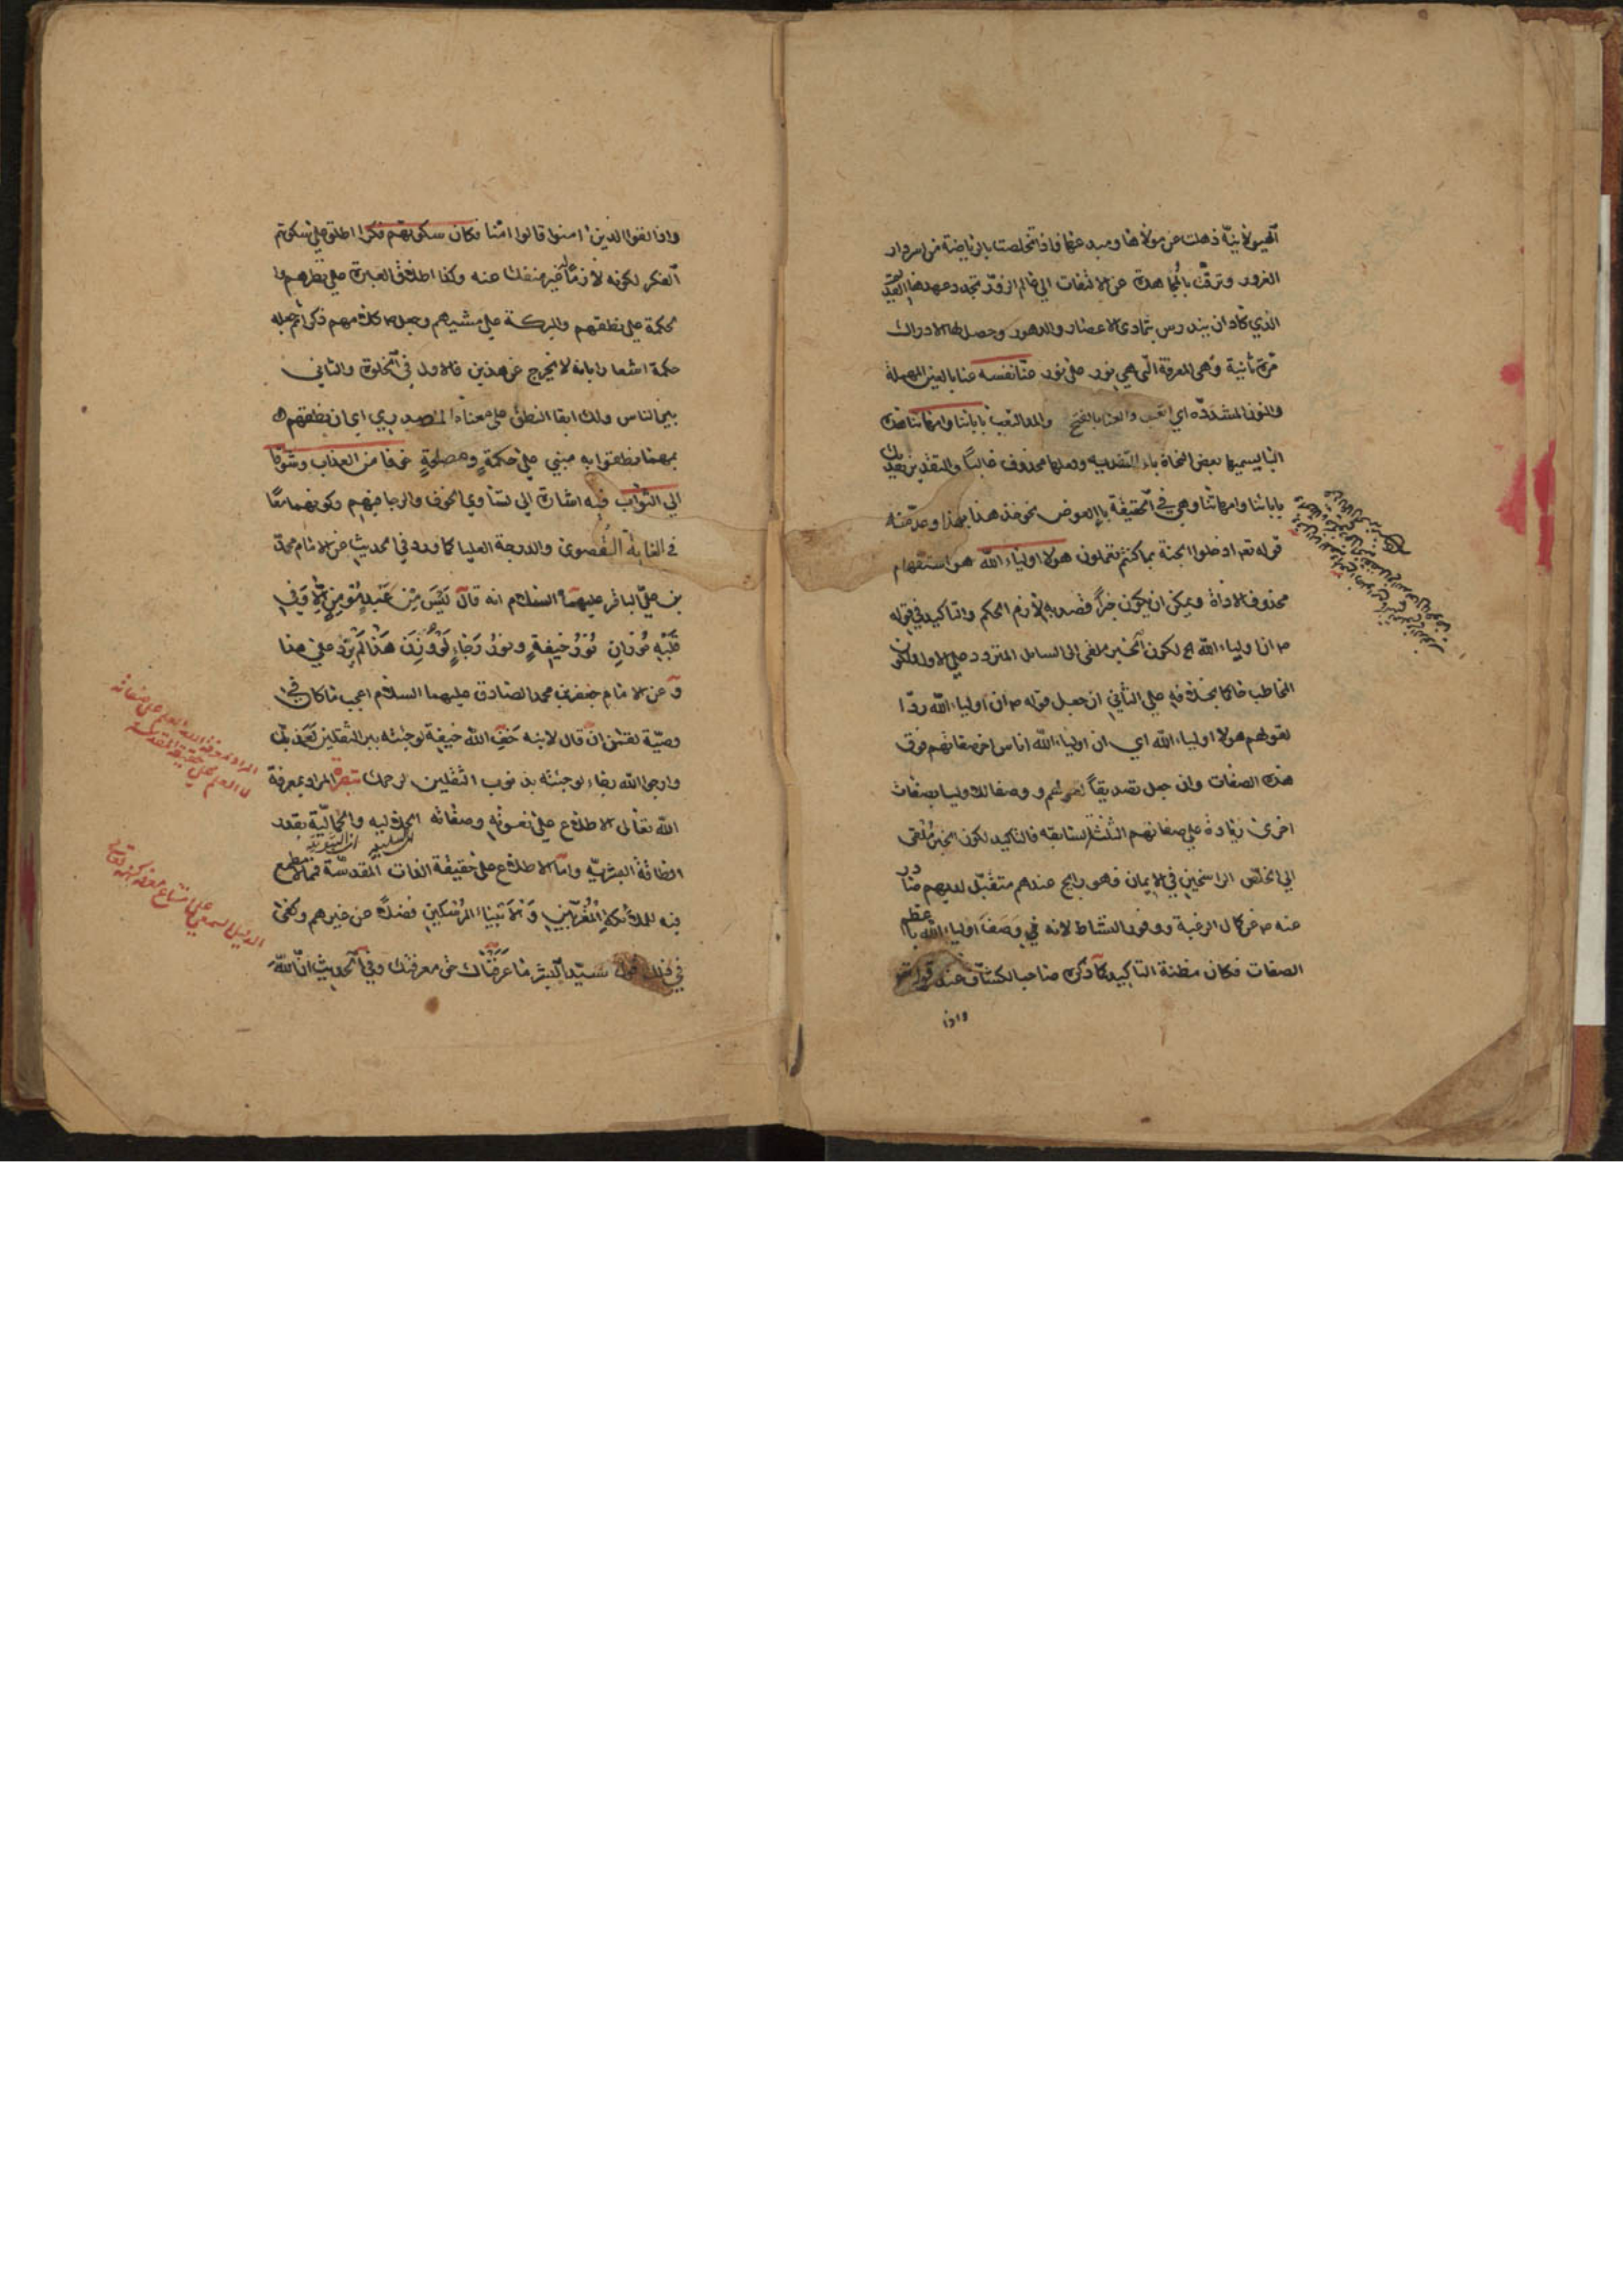 الهيولانية ذهلت عن مولاها ومبدعها فاذا تخلصت بالرياضة من اسر دار
الغرور وترقت بالمجاهدة عن الالتفات الى عالم الزور تجدد عهدها القديم
الذي كاد ان يندرس بتمادي الاعصار والدهور وحصل لها الادراك
مرة ثانية وهي المعرفة التي هي نور على نور عنا نفسه عنا بالعين المهملة
والنون المشددة اي اتعب والعنا بالفتح والمد التعب بابائنا وامهاتنا هذه
البا يسميها بعض النحاة باء التفدية وفعلها محذوف غالبا والتقدير نفديك
بابائنا وامهاتنا وهي في الحقيقة باء العوض نحو خذ هذا بهذا وعد منه
قوله تعالى ادخلوا الجنة بما كنتم تعملون هولاء اولياء الله هو استفهام
محذوف الاداة ويمكن ان يكون خبرا قصد به لازم الحكم والتاكيد في قوله
ان اولياء الله الخ لكون الخبر ملقى الى السائل المتردد على الاول ولكون
المخاطب حاكما بخلافه على الثاني ان جعل قوله ان اولياء الله ردا
لقولهم هولاء اولياء الله اي ان اولياء الله اناس اخر صفاتهم فوق
هذه الصفات وان جعل تصديقا لقولهم ووصفا للاولياء بصفات
اخرى زيادة على صفاتهم الثلث السابقة فالتاكيد لكون الخبر ملقى
الى الخلص الراسخين في الايمان فهو رايج عندهم متقبل لديهم صادر
عنه عن كمال الرغبة ووفور النشاط لانه في وصف اولياء الله باعظم
الصفات فكان مظنة التاكيد كما ذكره صاحب الكشاف عند قوله تعالى
واذا
واذا لقوا الذين امنوا قالوا امنا فكان سكوتهم فكرا اطلق على سكوتهم
الفكر لكونه لازما غير منفك عنه وكذا اطلاق العبرة على نظرهم وا
لحكمة على نطقهم والبركة على مشيهم وجعل كلامهم ذكرا ثم جعله
حكمة اشعارا بانه لا يخرج عن هذين فالاول في الخلوة والثاني
بين الناس ولك ابقا النطق على معناه المصدري اي ان نطقهم
بمهما نطقوا به مبني على حكمة ومصلحة خوفا من العذاب وشوقا
الى الثواب فيه اشارة الى تساوي الخوف والرجا فيهم وكونهما معا
في الغاية القصوى والدرجة العليا كما ورد في الحديث عن الامام محمد
بن علي الباقر عليهما السلام انه قال ليس من عبد مؤمن الا وفي
قلبه نوران نور خيفة ونور رجاء لو وزن هذا لم يزد على هذا
وعن الامام جعفر بن محمد الصادق عليهما السلام اعجب ما كان في
وصية لقمن ان قال لابنه خف الله خيفة لو جئته ببر الثقلين لعذبك
وارج الله رجاء لو جئته بذنوب الثقلين لرحمك تبصرة المراد بمعرفة
الله تعالى الاطلاع على نعوته وصفاته الجلالية والجمالية بقدر
الطاقة البشرية واما الاطلاع على حقيقة الذات المقدسة فمما لا مطمع
فيه للملائكة المقربين والانبياء المرسلين فضلا عن غيرهم وكفى
في ذلك قول سيد البشر ما عرفناك حق معرفتك وفي الحديث ان الله